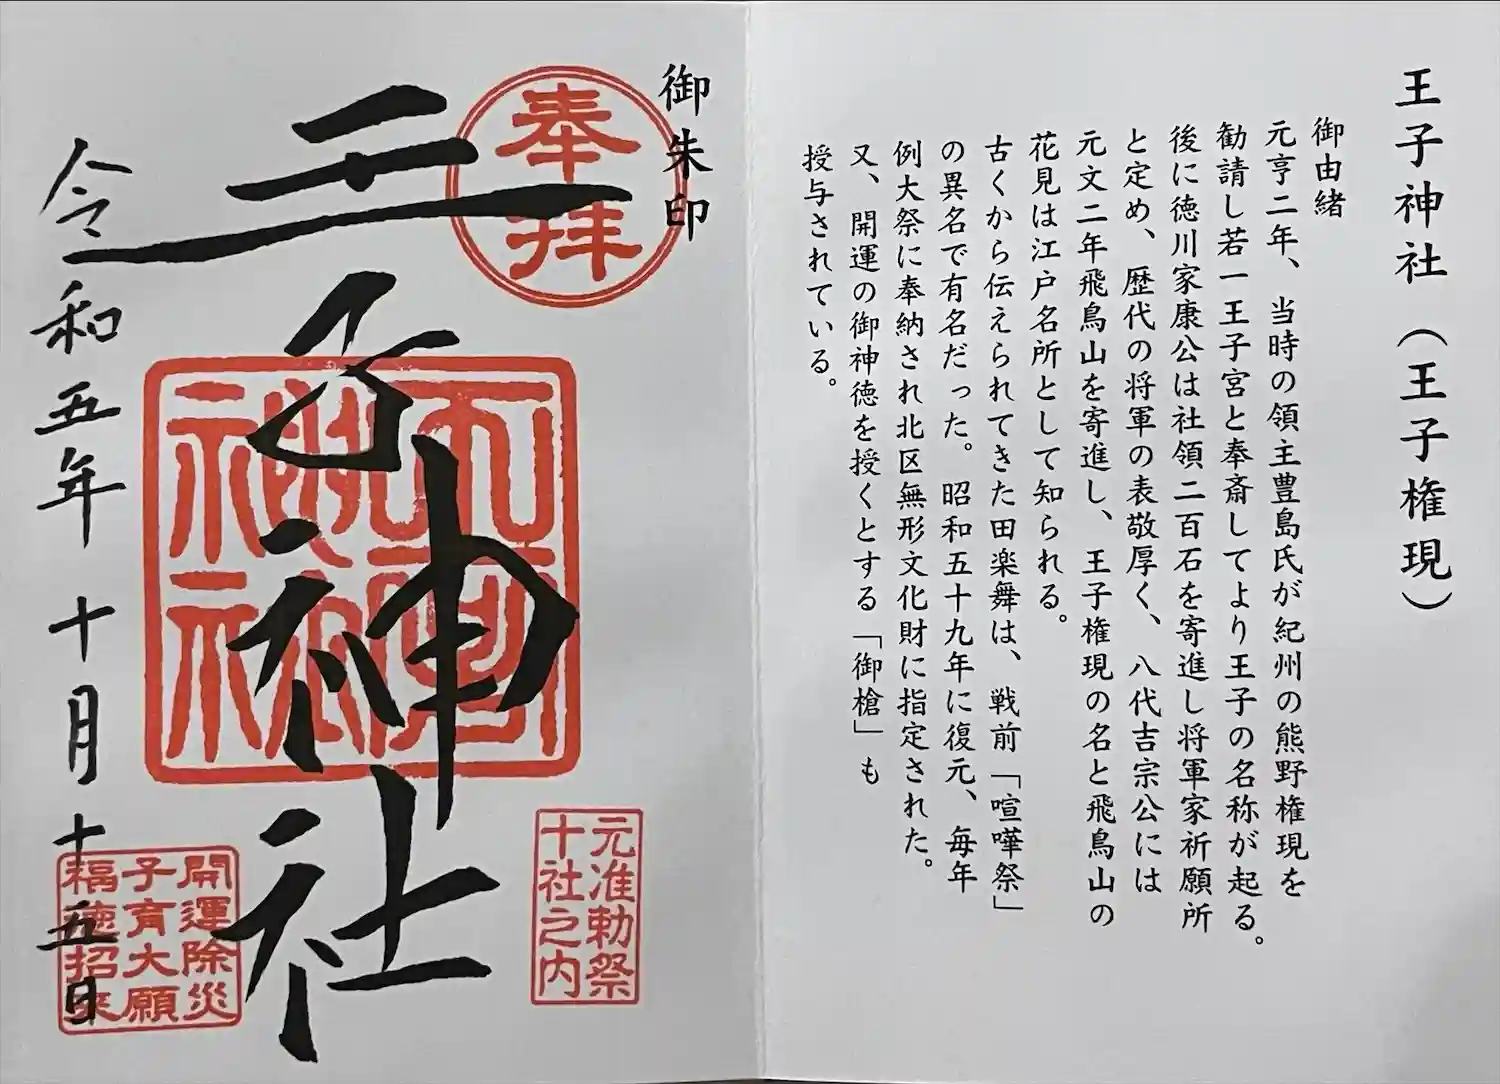 王子神社（王子権現）
御由緒
元亨二年、当時の領主豊島氏が紀州の熊野権現を
勧請し若一王子宮と奉斎してより王子の名称が起る。
後に徳川家康公は社領二百石を寄進し将軍家祈願所
と定め、歴代の将軍の表敬厚く、八代吉宗公には
元文二年飛鳥山を寄進し、王子権現の名と飛鳥山の
花見は江戸名所として知られる。
古くから伝えられてきた田楽舞は、戦前「喧嘩祭」
の異名で有名だった。昭和五十九年に復元、毎年
例大祭に奉納され北区無形文化財に指定された。
又、開運の御神徳を授くとする「御槍」も
授与されている。
御朱印
奉拝
王子神社
元准勅祭
十社之内
令和五年十月十五日
開運除災
子育大願
福徳招来